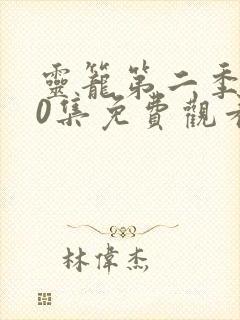 靈籠第二季
0集免費觀看
林偉杰